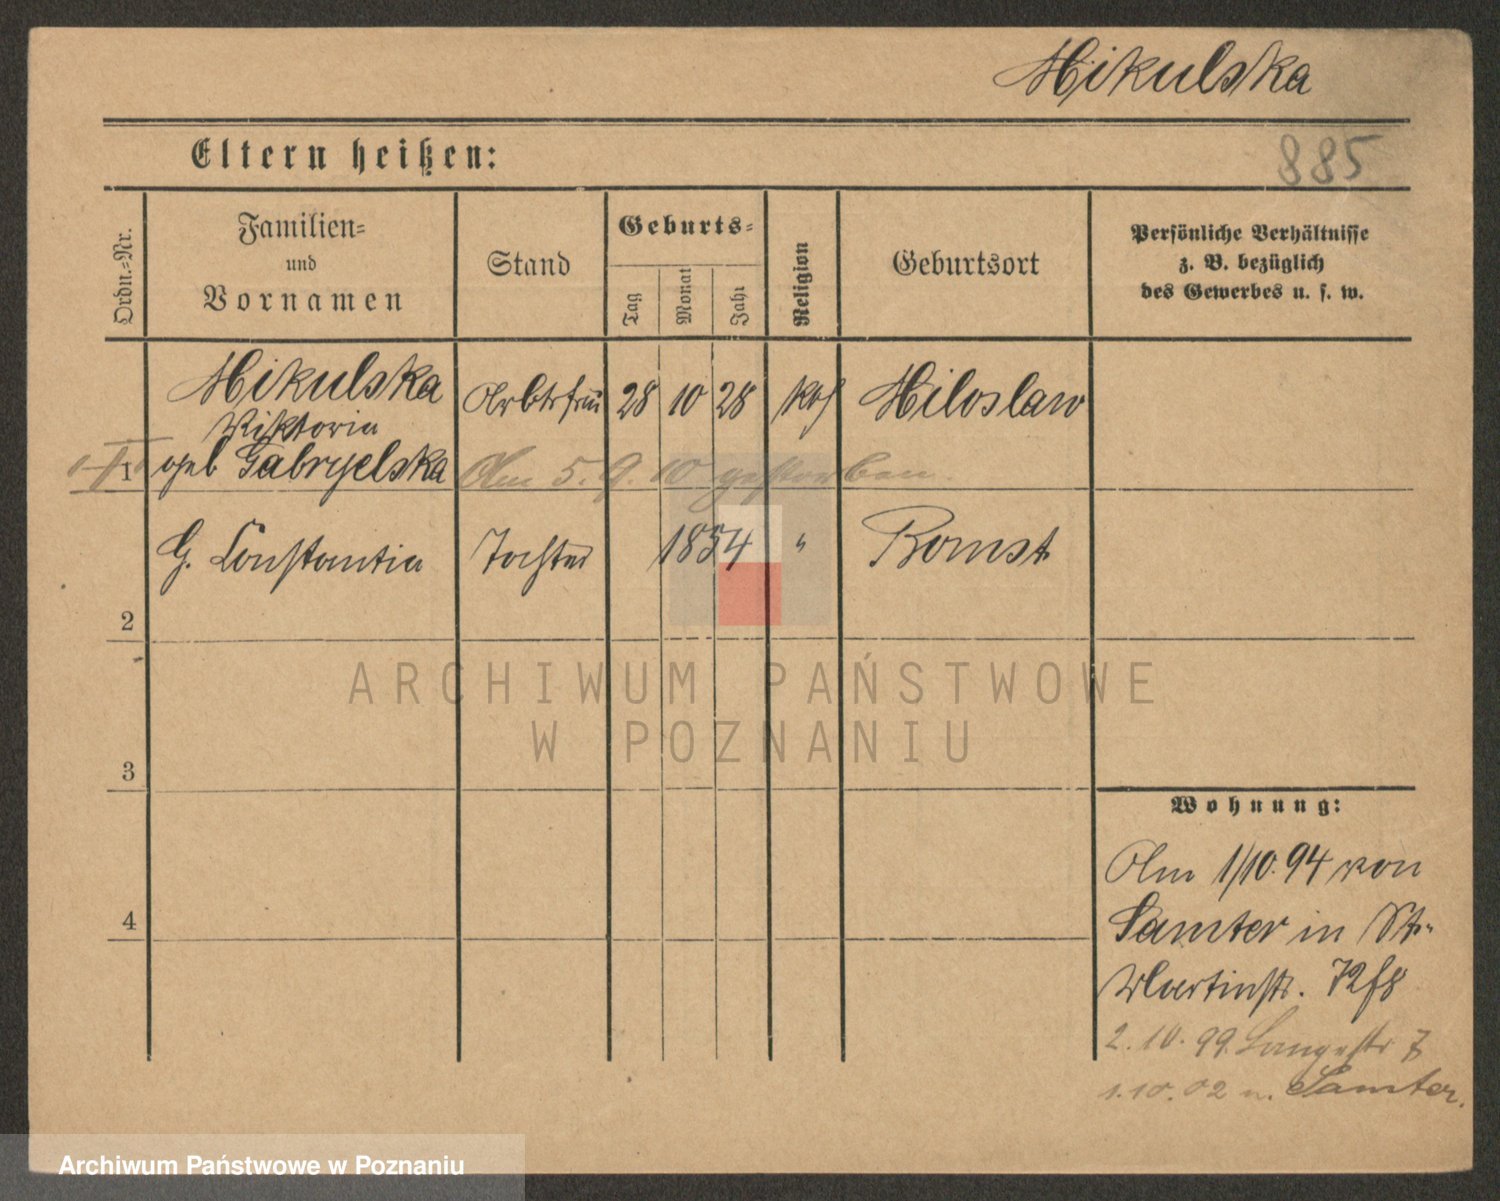 Mikulska
885
Eltern heißen:
Ordn.-Nr.
Familien-
und
Vornamen
Stand
Geburts-
Tag
Monat
Jahr
Religion
Geburtsort
Persönliche Verhältnisse
z. B. bezüglich
des Gewerbes u. s. w.
Mikulska
Viktoria
1 geb Gabryelska
Arbtrfrau 28 10 28 kath Miloslaw
Am 5.9.10 gestorben.
2 G. Constantia Tochter 1854 " Bomst
3
4
Wohnung:
Am 1/10.94 von
Samter in St.
Martinstr.
2.10.99. Langestr 7
1.10.02 n. Samter.
ARCHIWUM PAŃSTWOWE
W POZNANIU
Archiwum Państwowe w Poznaniu